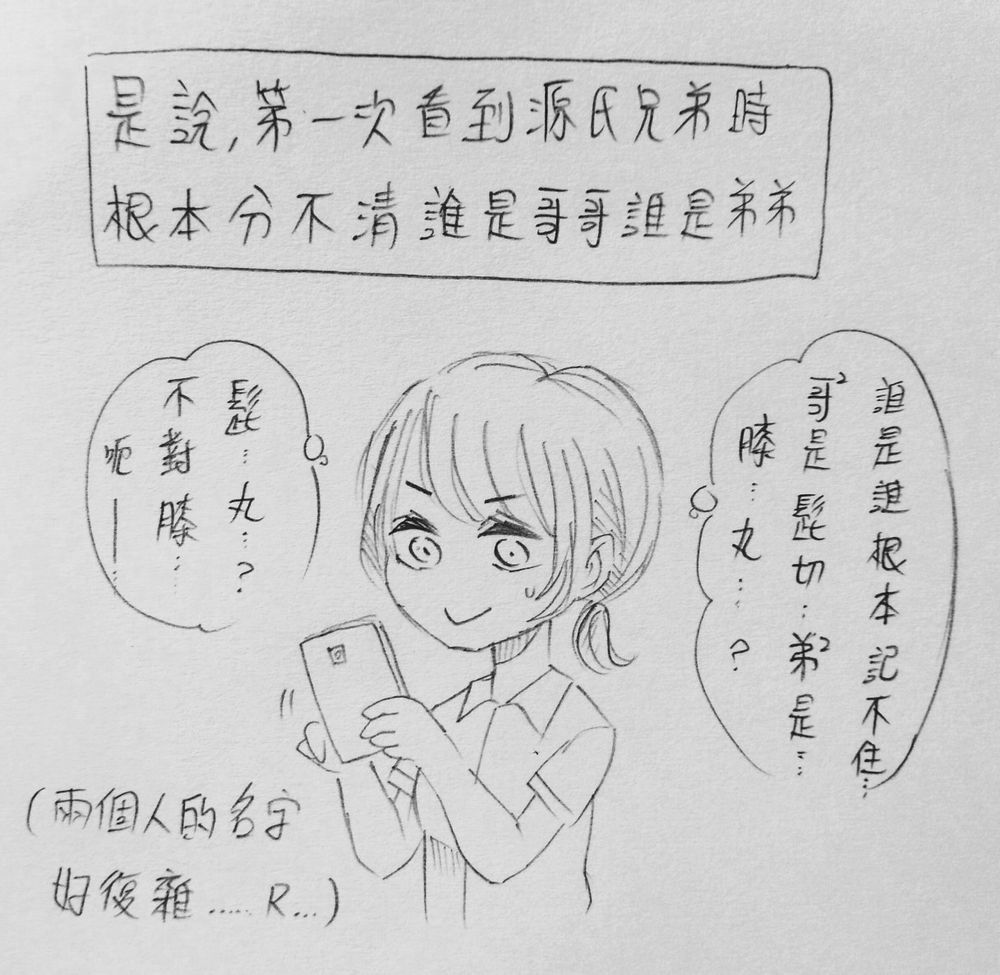 是說,第一次看到源氏兄弟時
根本分不清誰是哥哥誰是弟弟
誰是誰根本記不住…
哥²是髭切…弟²是…
膝…丸…?
髭…丸…?
不對膝…
呃——…
(兩個人的名字
好復雜…… R…)